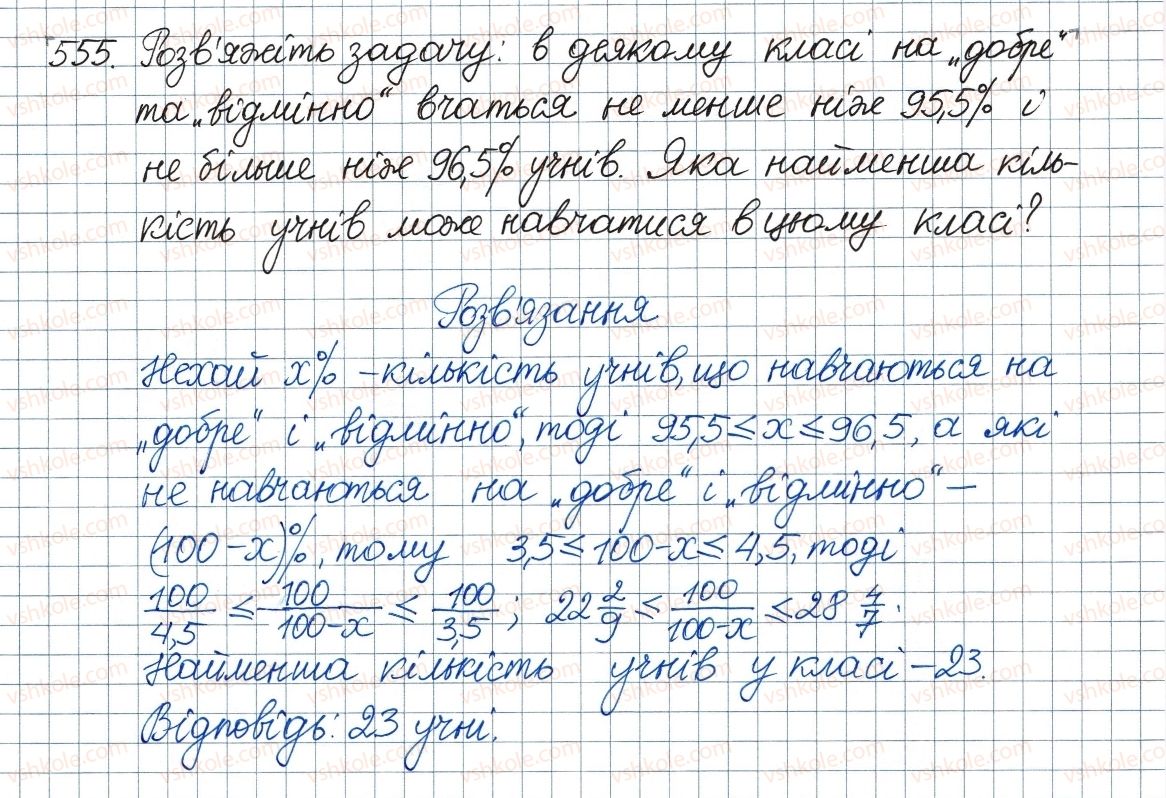 555. Розв'яжіть задачу: в деякому класі на „добре“
та „відмінно“ вчаться не менше ніж 95,5% і
не більше ніж 96,5% учнів. Яка найменша кіль-
кість учнів може навчатися в цьому класі?
Розв'язання
Нехай x% – кількість учнів, що навчаються на
„добре“ і „відмінно“, тоді 95,5 ≤ x ≤ 96,5, а які
не навчаються на „добре“ і „відмінно“ –
(100 – x)%, тому 3,5 ≤ 100 – x ≤ 4,5, тоді
100/4,5 ≤ 100/(100 – x) ≤ 100/3,5; 22 2/9 ≤ 100/(100 – x) ≤ 28 4/7.
Найменша кількість учнів у класі – 23.
Відповідь: 23 учні.
vshkole.com